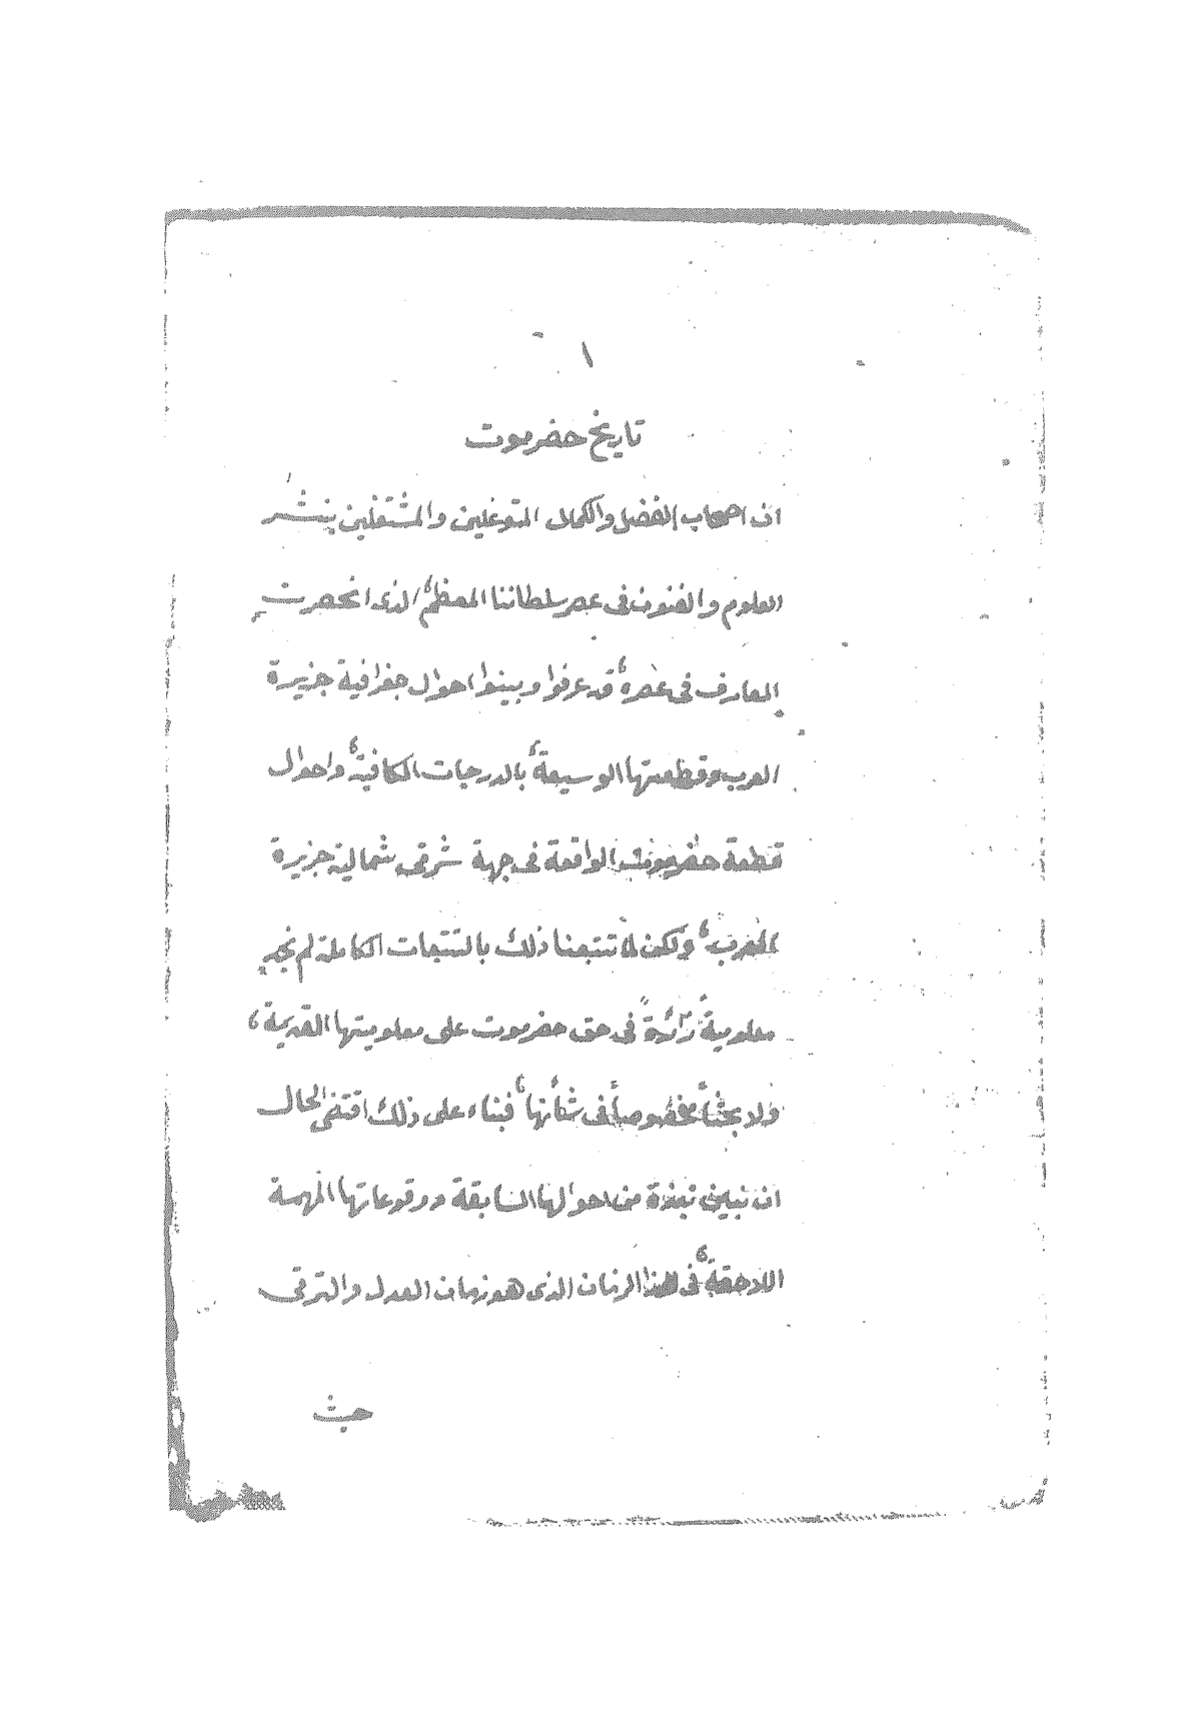 ١
تاريخ حضرموت
ان اصحاب الفضل والكمال المتوغلين والمشتغلين بنشر
العلوم والفنون فى عصر سلطاننا المعظم، الذى انحصرت
المعارف فى عصره، قد عرفوا وبينوا احوال جغرافية جزيرة
العرب وقطعتها الوسيعة، بالدرجات الكافية، واحوال
قطعة حضرموت الواقعة فى جهة شرقى شمالية جزيرة
العرب، ولكن لما تتبعنا ذلك بالتتبعات الكاملة لم نجد
معلومية زائدة فى حق حضرموت على معلوميتها القديمة،
ولا بحثاً مخصوصاً فى شأنها، فبناء على ذلك اقتضى الحال
ان نبين نبذة من احوالها السابقة ووقوعاتها المهمة
اللاحقة، فى هذا الزمان الذى هو زمان العدل والترقى
حيث